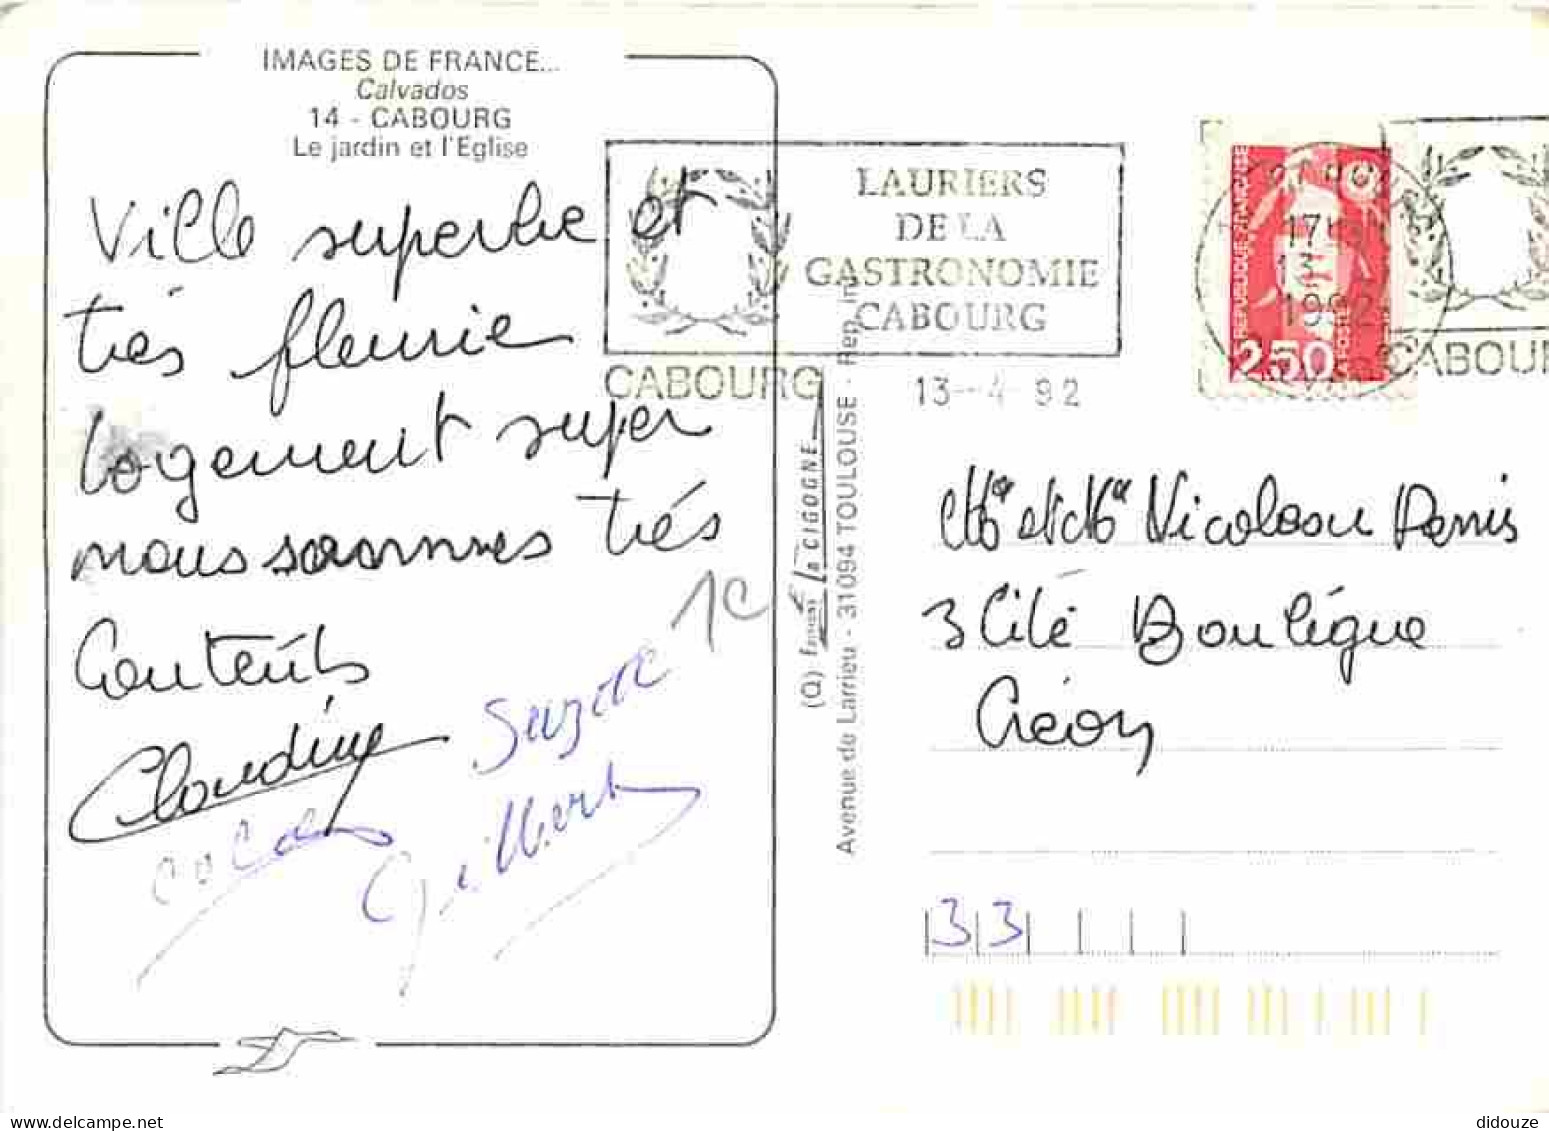 IMAGES DE FRANCE...
Calvados
14 - CABOURG
Le jardin et l'Eglise
Ville superbe et
très fleurie
logement super
nous sommes très
Contents
Claudine
Suzette
Gilbert
1C
LAURIERS
DE LA
GASTRONOMIE
CABOURG
CABOURG
13 -4 92
17H
13
1992
REPUBLIQUE FRANÇAISE
2,50
POSTES
CABOUR
(Q) Editions LA CIGOGNE
Avenue de Larrieu - 31094 TOULOUSE - Rep. in
et Nicoleau Denis
3 Cité Boulègue
Créon
33
didouze